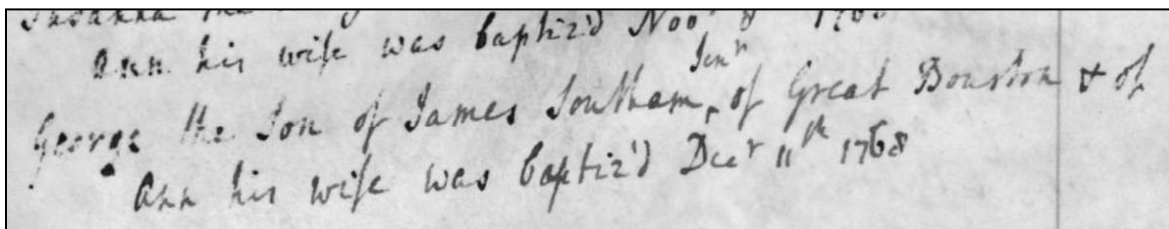 Susanna the
Ann his wife was baptiz'd Nov.r 8 1768
Jen.r
George the Son of James Southam, of Great Bourton & of
Ann his wife was baptiz'd Dec.r 11th 1768